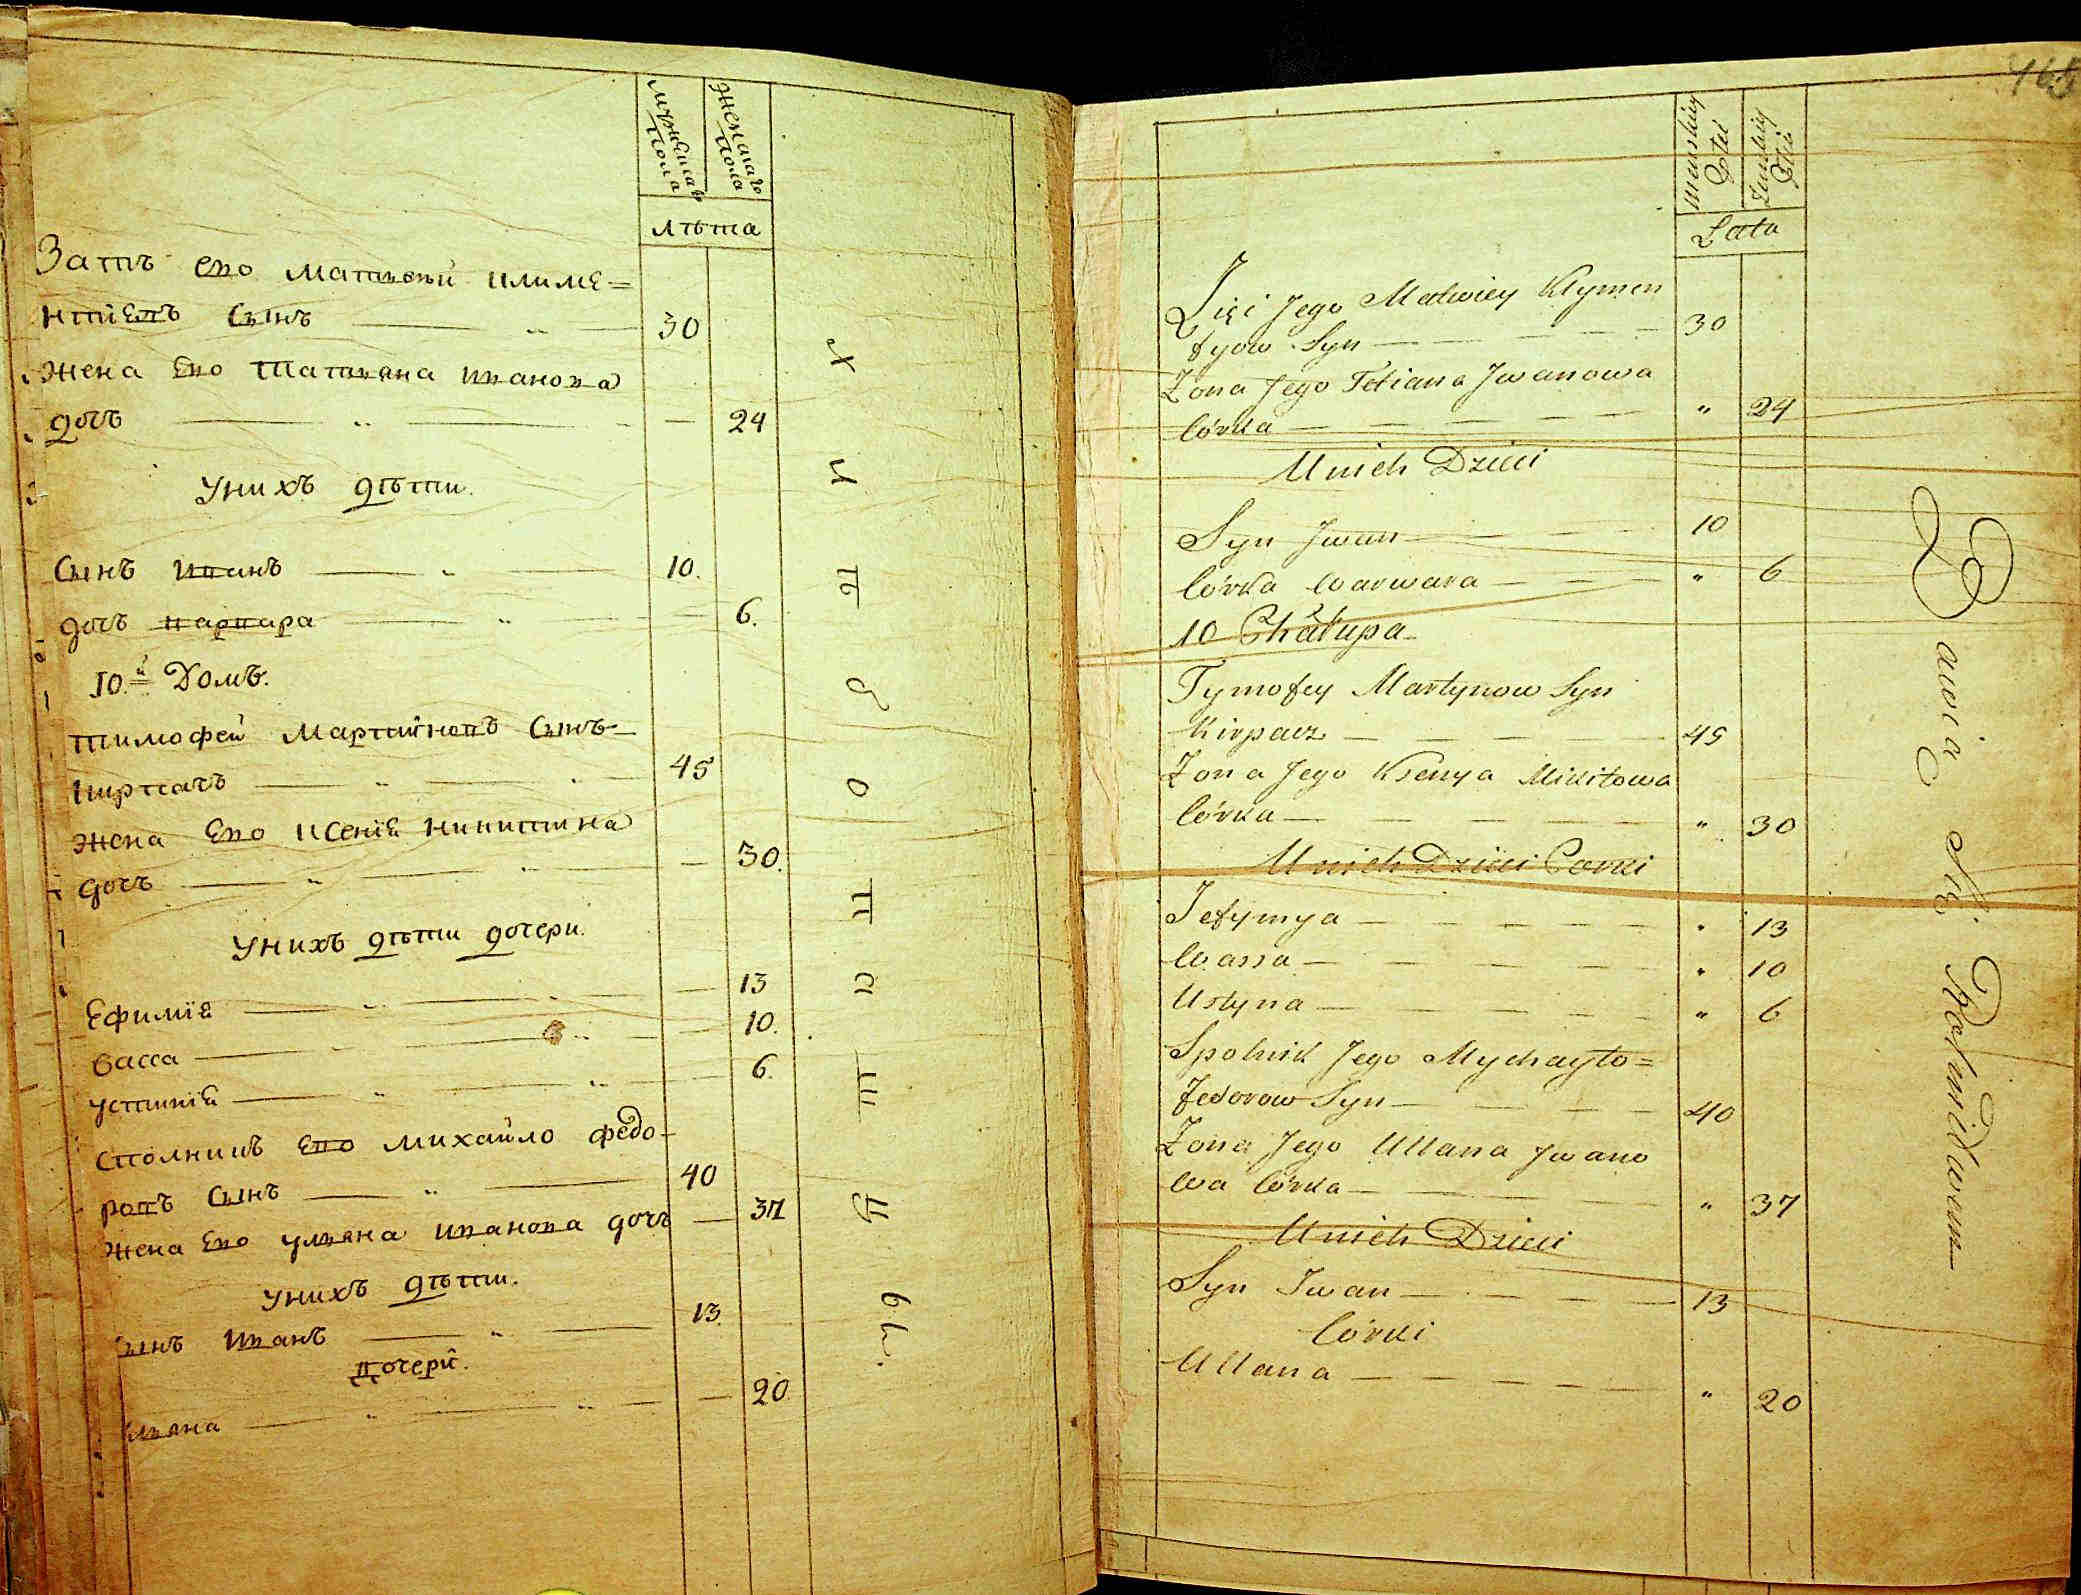 мужескаго пола
женскаго пола
лѣта
Зять его матвей климе=
нтіевъ сынъ 30
жена его татьяна иванова
дочь — 24
унихъ дѣти.
сынъ иванъ 10.
дочь варвара — 6.
10.й Домъ.
тимофей мартиновъ сынъ
кирпачъ 45
жена его ксенія никитина
дочь — 30.
унихъ дѣти дочери.
Ефимія — 13
васса — 10.
устинія — 6.
сполникъ его михайло федо-
ровъ сынъ 40
жена его уляна иванова дочь — 37
унихъ дѣти.
сынъ иванъ 13.
дочери.
уляна — 20.
хлѣбопашцы.
165
Męskiey Płci
Żeńskiey Płci
Lata
Zięć Jego Matwiey Klymen
tyow Syn — 30
Żona Jego Tetiana Jwanowa
Córka — " 24
Unich Dzieci
Syn Jwan — 10
Córka Warwara — " 6
10 Chałupa
Tymofey Martynow Syn
Kirpacz — 45
Żona Jego Ksenya Mikitowa
Córka — " 30
Unich Dzieci Corki
Jefymya — " 13
Wassa — " 10
Ustyna — " 6
Spolnik Jego Mychayło=
Fedorow Syn — 40
Żona Jego Ullana Jwano
wa Córka — " 37
Unich Dzieci
Syn Iwan — 13
Córki
Ullana — " 20
Bawią Się Rolnidwem